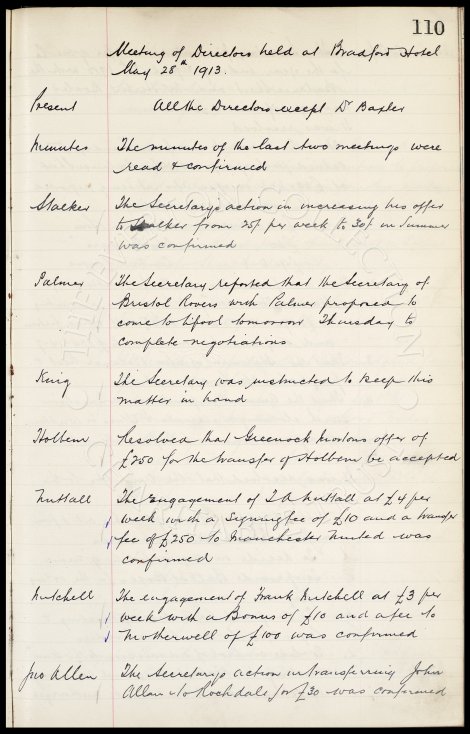 110
Meeting of Directors held at Bradford Hotel
May 28th 1913.
Present All the Directors except Dr Baxter
Minutes The minutes of the last two meetings were
read & confirmed
Stalker The Secretarys action in increasing his offer
to Stalker from 25/ per week to 30/ in Summer
was confirmed
Palmer The Secretary reported that the Secretary of
Bristol Rovers with Palmer proposed to
come to L'pool tomorrow Thursday to
complete negotiations
King The Secretary was instructed to keep this
matter in hand
Holbem Resolved that Greenock Mortons offer of
£250 for the transfer of Holbem be accepted
Nuttall The engagement of T A Nuttall at £4 per
week with a Signing fee of £10 and a transfer
fee of £250 to Manchester United was
confirmed
Mitchell The engagement of Frank Mitchell at £3 per
week with a Bonus of £10 and a fee to
Motherwell of £100 was confirmed
Jno Allan The Secretarys action in transferring John
Allan to Rochdale for £30 was confirmed